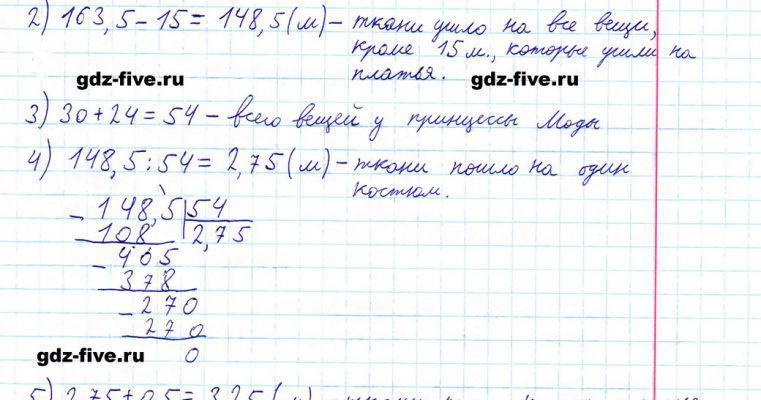 2) 163,5 - 15 = 148,5 (м) - ткани ушло на все вещи,
кроме 15 м., которые ушли на
платья.
gdz-five.ru
gdz-five.ru
3) 30 + 24 = 54 - всего вещей у принцессы Моды
4) 148,5 : 54 = 2,75 (м) - ткани пошло на один
костюм.
- 148,5 | 54
108 | 2,75
- 405
378
- 270
270
0
gdz-five.ru
5) 2,75 + 0,5 = 3,25 (м)